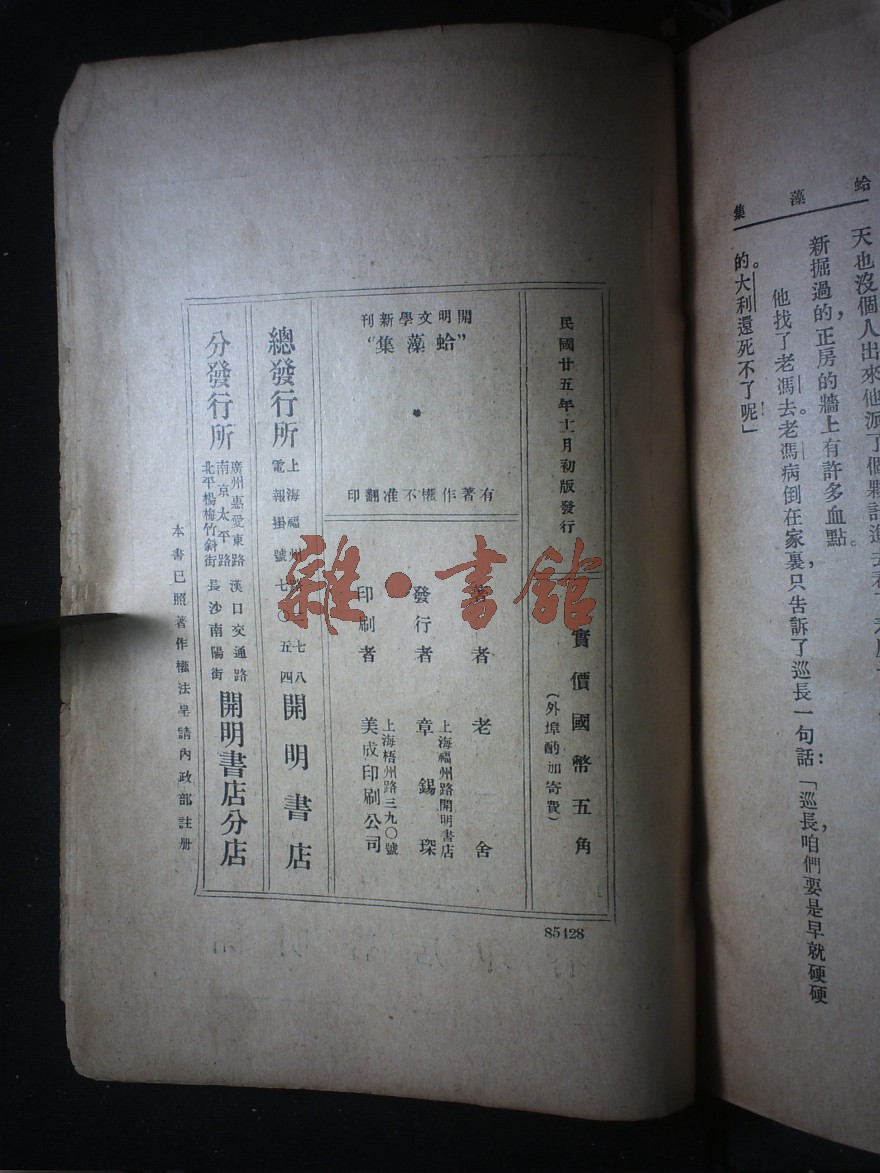 蛤藻集
天也沒個人出來他派了個夥計進去看
新掘過的，正房的牆上有許多血點。
他找了老馮去。老馮病倒在家裏，只告訴了巡長一句話：「巡長，咱們要是早就硬硬
的。大利還死不了呢！」
民國廿五年十一月初版發行
實價國幣五角
（外埠酌加寄費）
85428
開明文學新刊
“蛤藻集”
有著作權不准翻印
著者 老舍
發行者 章錫琛
上海福州路開明書店
印刷者 美成印刷公司
上海梧州路三九〇號
總發行所
上海福州路二七八
電報掛號七〇五四
開明書店
分發行所
廣州惠愛東路 漢口交通路
南京太平路
北平楊梅竹斜街 長沙南陽街
開明書店分店
本書已照著作權法呈請內政部註冊
雜·書館